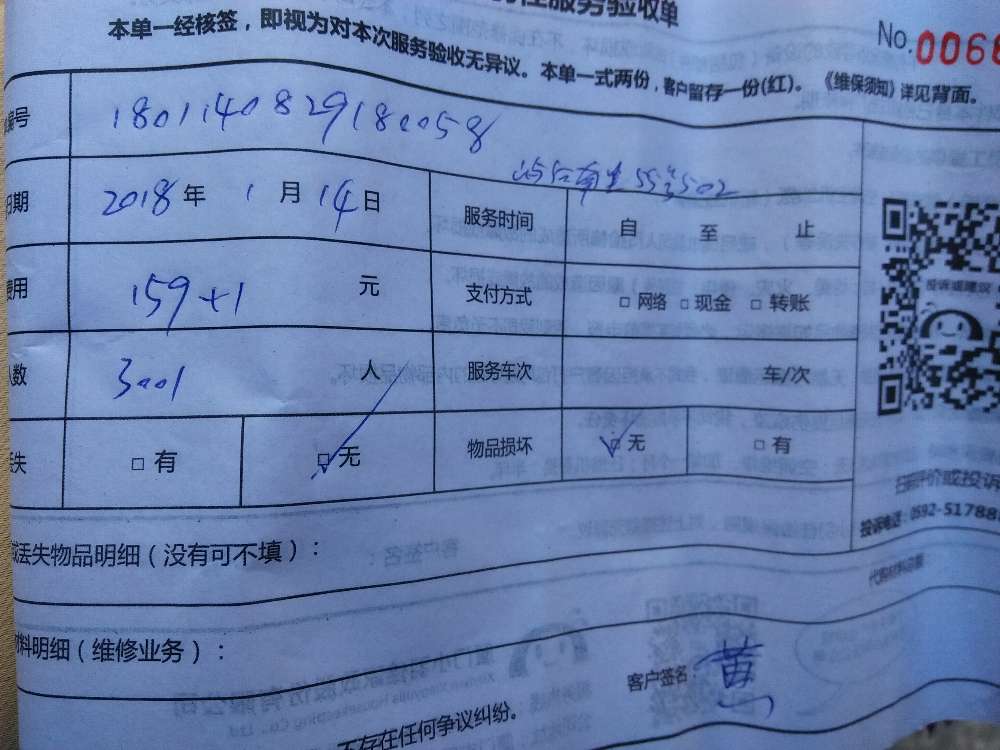 性服务验收单
本单一经核签，即视为对本次服务验收无异议。本单一式两份，客户留存一份(红)。《维保须知》详见背面。
No. 0066
编号 1801140829180058
日期 2018年 1 月 14日 服务时间 自 至 止
费用 159+1 元 支付方式 □网络 □现金 □转账
人数 3001 人 服务车次 车/次
丢失 □有 □无 物品损坏 □无 □有
投诉或建议
扫码评价或投诉
投诉电话：0592-51788
或丢失物品明细（没有可不填）：
材料明细（维修业务）：
客户签名： 黄
不存在任何争议纠纷。